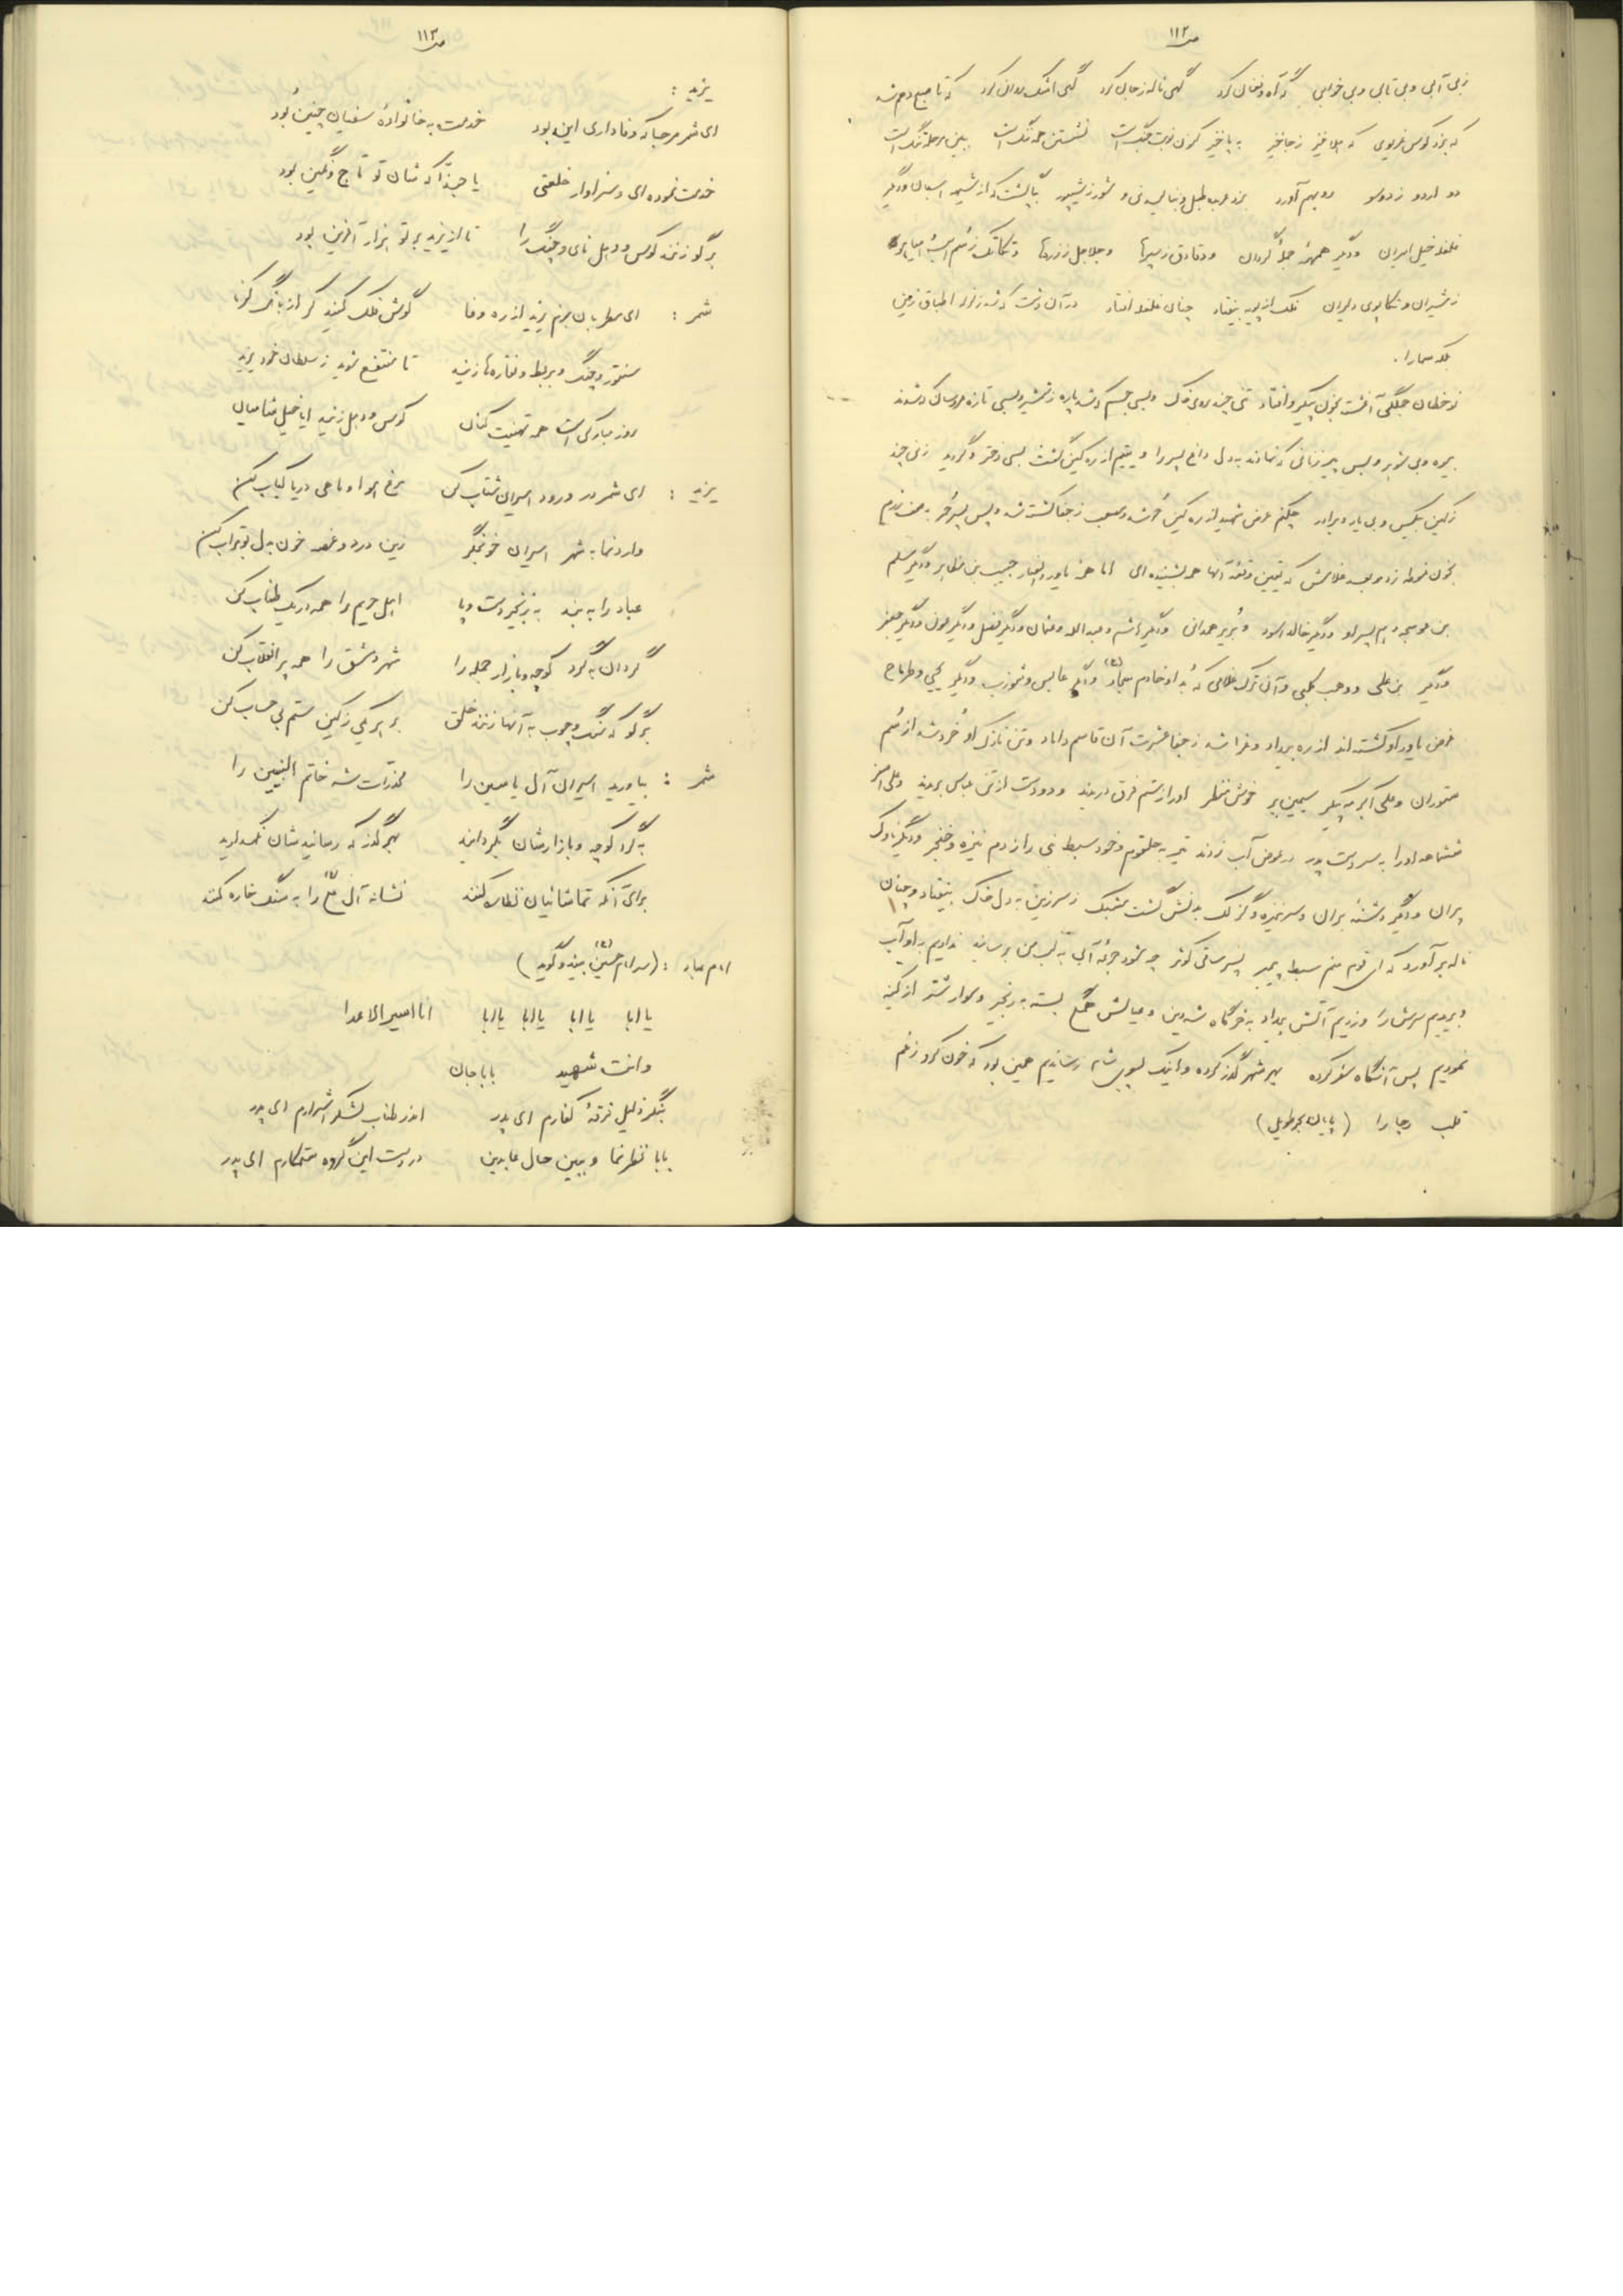 ص ۱۱۲
ز بی آبی و بی تابی و بی خوابی گه آه و فغان کرد گهی ناله ز جان کرد گهی اشک روان کرد که تا صبح دوم شد
که بزد کوس غریوی که هلا خیز ز جا خیز به پا خیز کزین نوبت جنگ است نشستن همه ننگ است ببین مرحله تنگ است
دو اردو ز دو سو رو بهم آورد بزد عرب طبل و بنالید نی و شور ز شیپور بپا گشت که از شیهه اسبان و دگر
غلغله خیل امیران و دگر همهمهٔ جملهٔ گردان و دقادق ز سپرها و جلاجل ز زره‌ها و تکاتک ز سم اسب
ز شیران و تکاپوی دلیران فلک از پویه بیفتاد چنان غلغله افتاد در آن دشت که شد زلزله اطباق زمین
بلکه سما را.
نوخطان جملگی آغشته بخون پیکر و افتاد تنی چند بروی خاک و بسی جسم که شد پاره ز شمشیر و بسی تازه عروسان که شدند
بیوه و بی شوهر و بس پیرزنانی که نهادند به دل داغ پسر را و یتیم از ره کین گشت بسی دختر و گردید زنی چند
ز کین بیکس و بی یار و برادر چکنم عرض شهید از ره کین حر شد و مصعب ز جفا کشته شد و پس پسر حر به صف رزم
بخون غوطه زد و عبد غلامش که یقین وقعهٔ آنها همه بشنیده‌ای اما همه یاور و انصار حبیب بن مظاهر و دگر مسلم
بن عوسجه و هم پسر او و دگر خالد اسود و بُریر همدانی و دگر هاشم و عبدالله و عثمان و دگر فضل و دگر عون و دگر جعفر
و دگر بن علی و وهب کلبی و آن ترک غلامی که بُد او خادم سجاد (ع) و دگر عابس و شوذب و دگر یحیی و طرماح
غرض یاور او کشته شدند از ره بیداد و عزا شد ز جفا عشرت آن قاسم داماد و تن نازک او خرد شد از سُم
ستوران و علی اکبر مه پیکر سیمین بر خوش منظر او را ز ستم فرق دریدند و دو دست از تن عباس بریدند و علی اصغر
ششماهه او را به سر دست پدر در عوض آب زدند تیر به حلقوم و خود سبط نبی را ز دم نیزه و خنجر و دگر ناوک
پران و دگر دشنهٔ بران و سر نیزه و گزلک بدنش گشت مشبک ز سر زین به دل خاک بیفتاد و چنان
ناله برآورد که ای قوم منم سبط پیمبر پسر ساقی کوثر چه شود جرعهٔ آبی به لب من برسانید ندادیم به او آب
و بریدیم سرش را و زدیم آتش بیداد به خرگاه شه دین و عیالش همگی بسته به زنجیر و سوار شتر از کینه
نمودیم پس آنگاه سفر کرده بهر شهر گذر کرده و اینک بسوی شام رساندیم همین بود که خون کرد ز غم
قلب رجا را (پایان بحرطویل)
ص ۱۱۳
یزید :
ای شمر مرحبا که وفاداری این بود خدمت به خانوادهٔ سفیان چنین بُود
خدمت نموده‌ای و سزاوار خلعتی یا حبذا که شان تو تاج و نگین بود
برگو زنند کوس و دهل نای و چنگ را تا از یزید بر تو هزار آفرین بود
شمر : ای مطربان بزم یزید از ره وفا گوش فلک کنید کر از بانگ کرنا
سنتور و چنگ و بربط و نقاره‌ها زنید تا منتفع شوید ز سلطان خود یزید
روز مبارکی است همه تهنیت کنان کوس و دهل زنید ایا خیل شامیان
یزید : ای شمر در ورود اسیران شتاب کن مرغ هوا و ماهی دریا کباب کن
وارد نما به شهر اسیران خونجگر زین درد و غصه خون به دل بوتراب کن
عباد را به بند به زنجیر دست و پا اهل حریم را همه در یک طناب کن
گردان به گرد کوچه و بازار جمله را شهر دمشق را همه پر انقلاب کن
برگو که سنگ و چوب به آنها زنند خلق بر هر یکی ز کین ستم بی حساب کن
شمر : بیاورید اسیران آل یاسین را مخدرات شه خاتم النبیین را
به گرد کوچه و بازارشان بگردانید بهر گذر که رسانیدشان نگهدارید
برای آنکه تماشائیان نظاره کنند نشانه آل علی (ع) را به سنگ خاره کنند
امام عباد : (سر امام حسین (ع) بیند و گوید)
یا ابا یا ابا یا ابا یا ابا انا اسیر الاعدا
وانت شهید بابا جان
بنگر ذلیل فرقهٔ کفارم ای پدر اندر طناب لشکر اشرارم ای پدر
بابا نظر نما و ببین حال عابدین در دست این گروه ستمکارم ای پدر